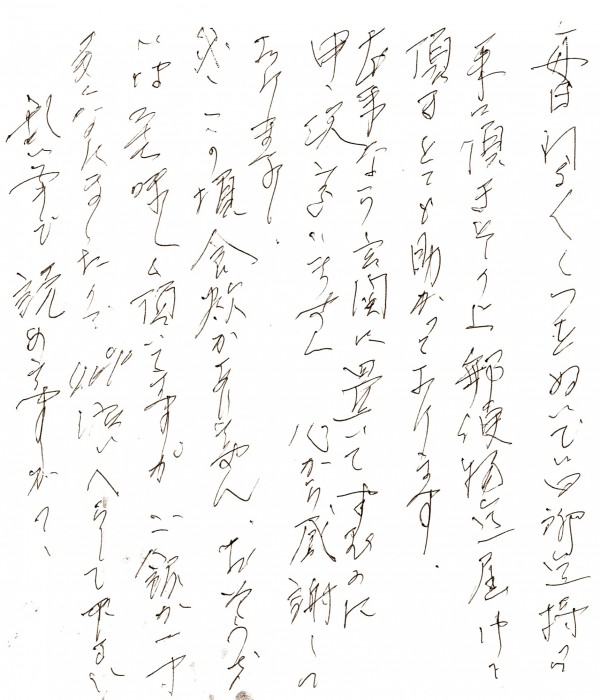 毎日 くつをぬいで 迄持って
来て頂きその上郵便物迄届けて
頂きとても助かっております.
本来なら玄関に置いてすむのに
申し訳ございません 心から感謝して
おります.
この頃食慾がありません、おそうざい
は美味しく頂いてますが ご飯が一寸
多くなりましたので、40%位いへらして下さい
乱筆で読めますか